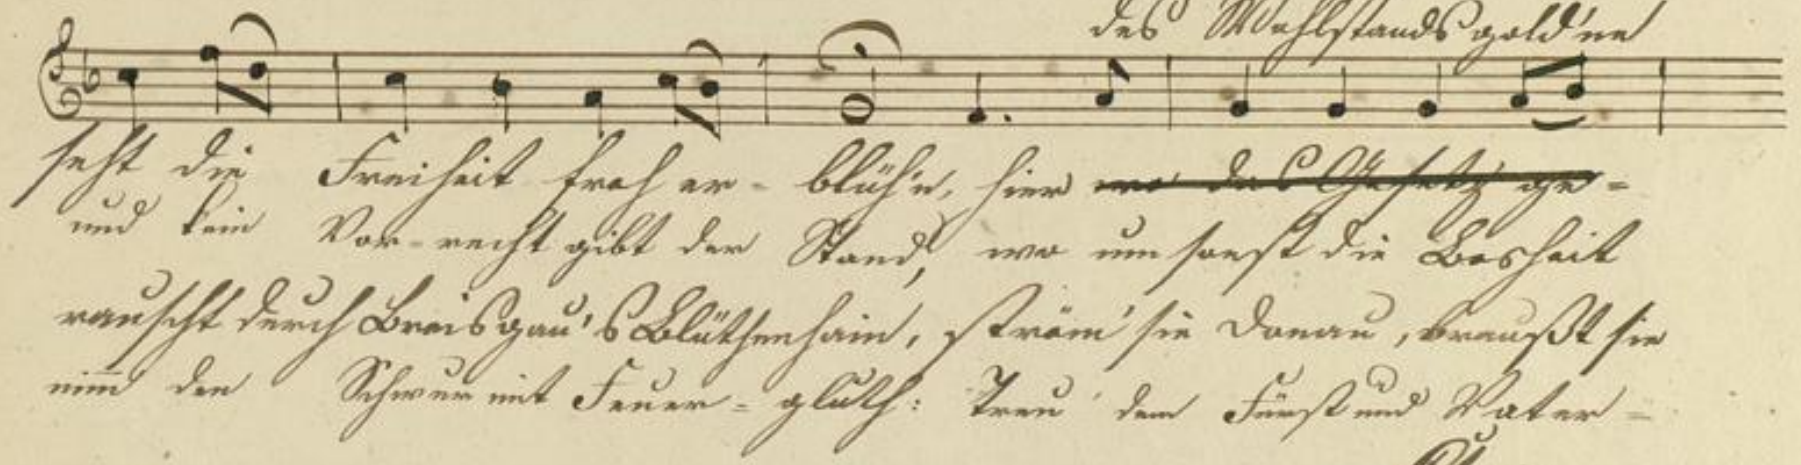 des Wohlstands gold'ne
seht die Freiheit froh er- blüh'n, hier wo das Gesetz ge-
und kein Vor-recht gibt der Stand, wo umsonst die Bosheit
rauscht durch Breisgau's Blüthenhain, ström' sie Donau, braußt sie
nim̅ den Schwur mit Feuer- gluth: Treu dem Fürst und Vater-